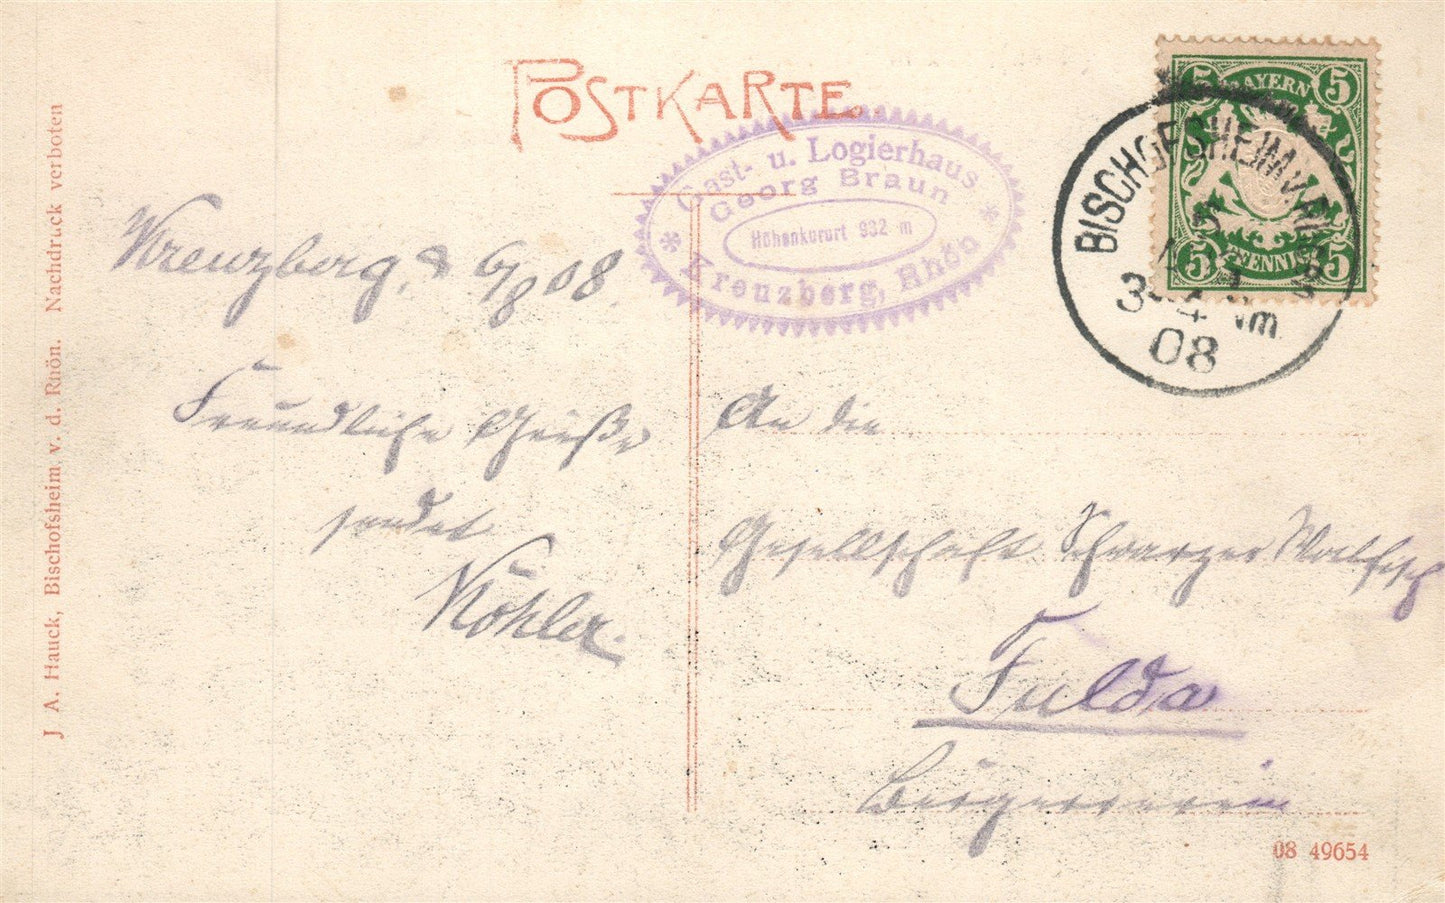 POSTKARTE
Gast- u. Logierhaus
Georg Braun
Höhenkurort 932 m
Kreuzberg, Rhön
BAYERN
5 5
5 PFENNIG 5
BISCHOFSHEIM V.
3-4 Nm
08
Kreuzberg, 08
Freundliche Grüße
sendet
Köhler.
An die
Gesellschaft Schwarzer Walfisch
Fulda
Bürgerverein
J. A. Hauck, Bischofsheim v. d. Rhön. Nachdruck verboten
08 49654